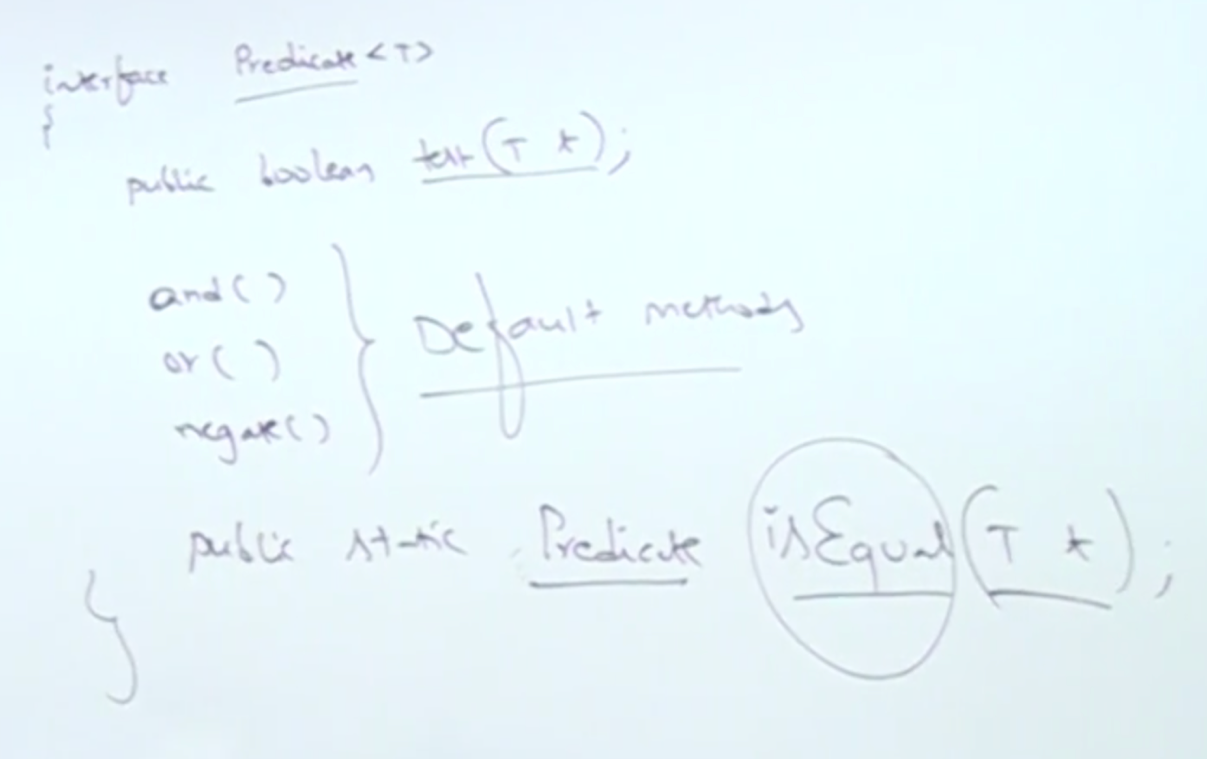 interface Predicate<T>
{
public boolean test(T t);
and()
or()
negate()
} Default methods
public static Predicate isEqual(T t);
}